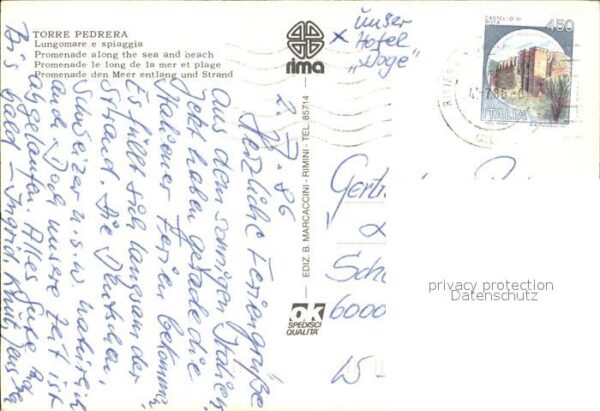 TORRE PEDRERA
Lungomare e spiaggia
Promenade along the sea and beach
Promenade le long de la mer et plage
Promenade den Meer entlang und Strand
rima
x unser
Hotel
"Doge"
CASTELLO DI
450
ITALIA
EDIZ. B. MARCACCINI - RIMINI - TEL. 85714
OK
SPEDISCI
QUALITÀ
2. 7. 86
Herzliche Feriengrüße
Aus dem sonnigen Italien
jetzt haben gerade die
Italiener Ferien bekommen
Es füllt sich langsam der
Strand. Die Deutschen,
Schweizer u.s.w. natürlich
auch. Doch unsere Zeit ist
abgelaufen. Alles Gute und
Bis bald - Ingrid, Knut, Jens
Gertr
Sch
6000
W-
privacy protection
Datenschutz